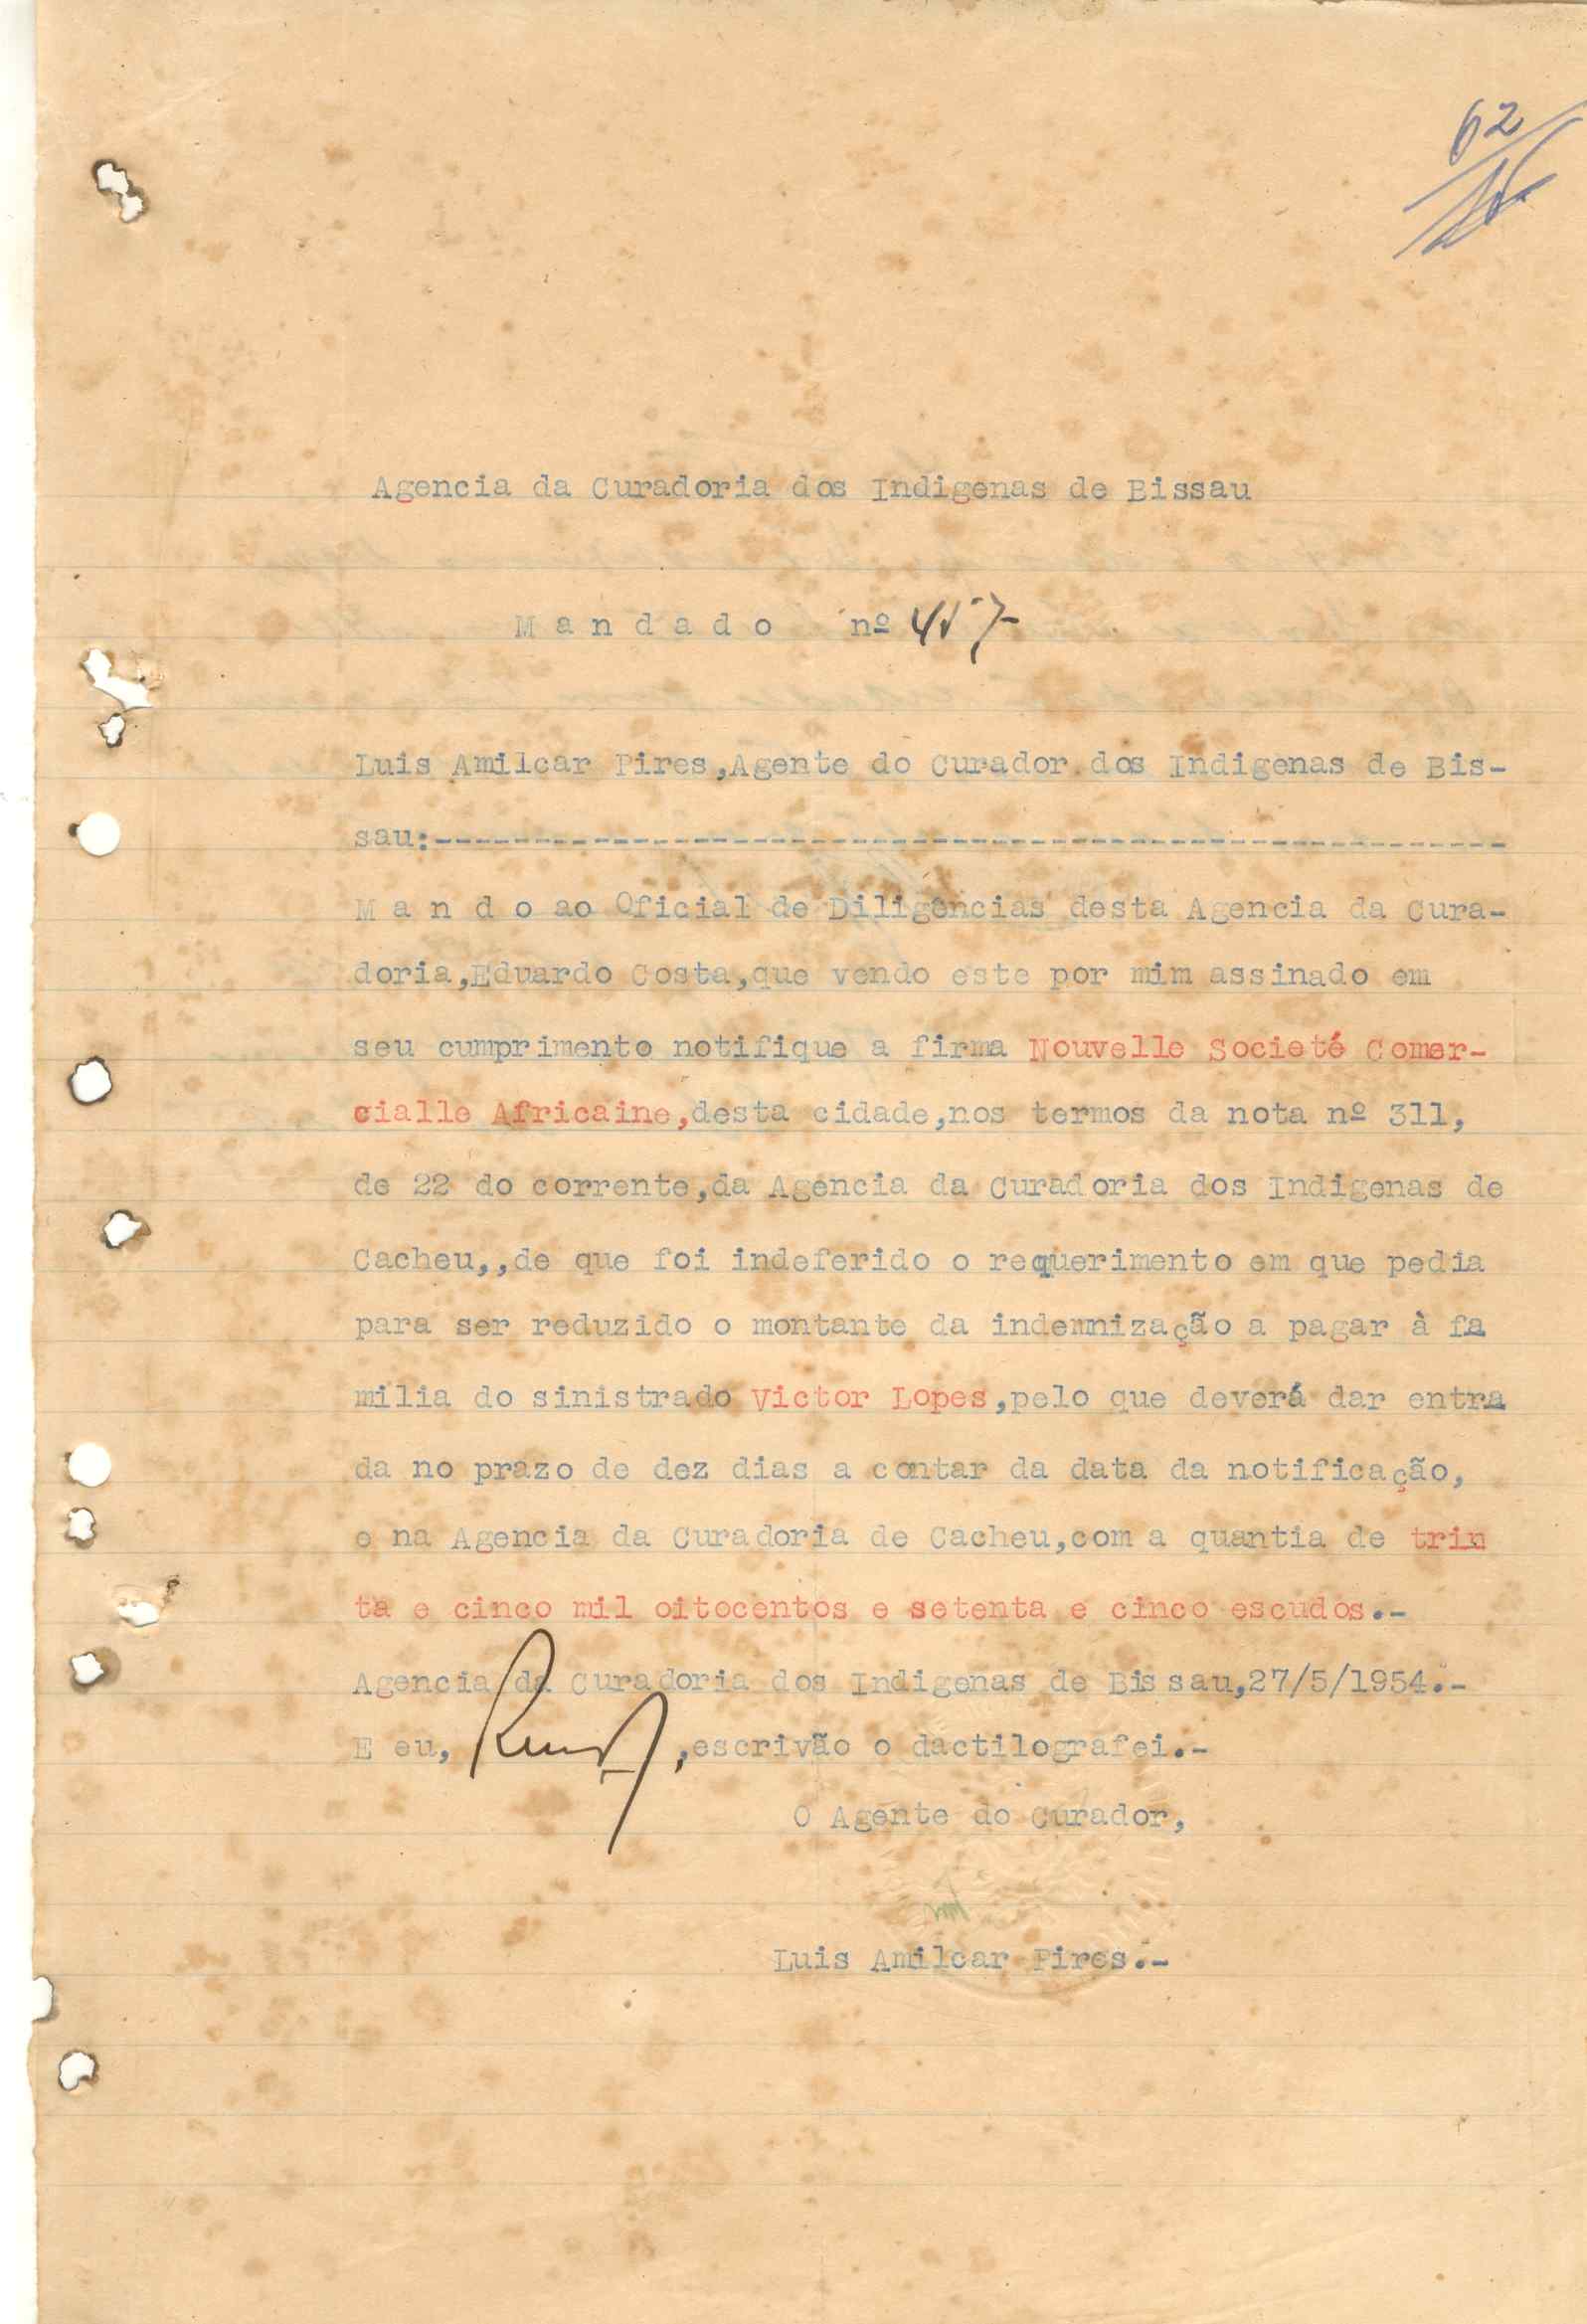 62
Agencia da Curadoria dos Indigenas de Bissau
M a n d a d o nº 457
Luis Amilcar Pires,Agente do Curador dos Indigenas de Bis-
sau:-------------------------------------------------------
M a n d o ao Oficial de Diligências desta Agencia da Cura-
doria,Eduardo Costa,que vendo este por mim assinado em
seu cumprimento notifique a firma Nouvelle Societé Comer-
cialle Africaine,desta cidade,nos termos da nota nº 311,
de 22 do corrente,da Agência da Curadoria dos Indigenas de
Cacheu,,de que foi indeferido o requerimento em que pedia
para ser reduzido o montante da indemnização a pagar à fa
milia do sinistrado Victor Lopes,pelo que deverá dar entra
da no prazo de dez dias a contar da data da notificação,
e na Agencia da Curadoria de Cacheu,com a quantia de trin
ta e cinco mil oitocentos e setenta e cinco escudos.-
Agencia da Curadoria dos Indigenas de Bissau,27/5/1954.-
E eu, ,escrivão o dactilografei.-
O Agente do Curador,
Luis Amilcar Pires.-